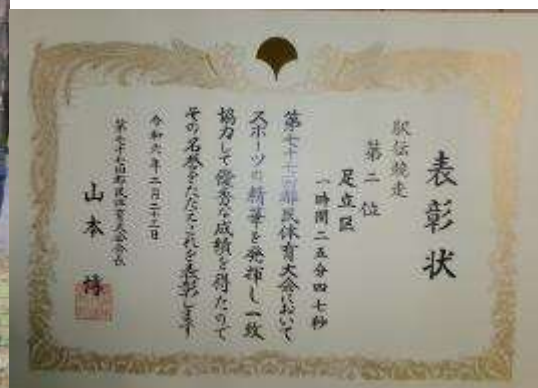 表彰状
駅伝競走
第二位
足立区
一時間二五分四七秒
第七十七回都民体育大会において
スポーツの精華を発揮し一致
協力して優秀な成績を得たので
その名誉をたたえこれを表彰します
令和六年二月二十三日
第七十七回都民体育大会会長
山本博